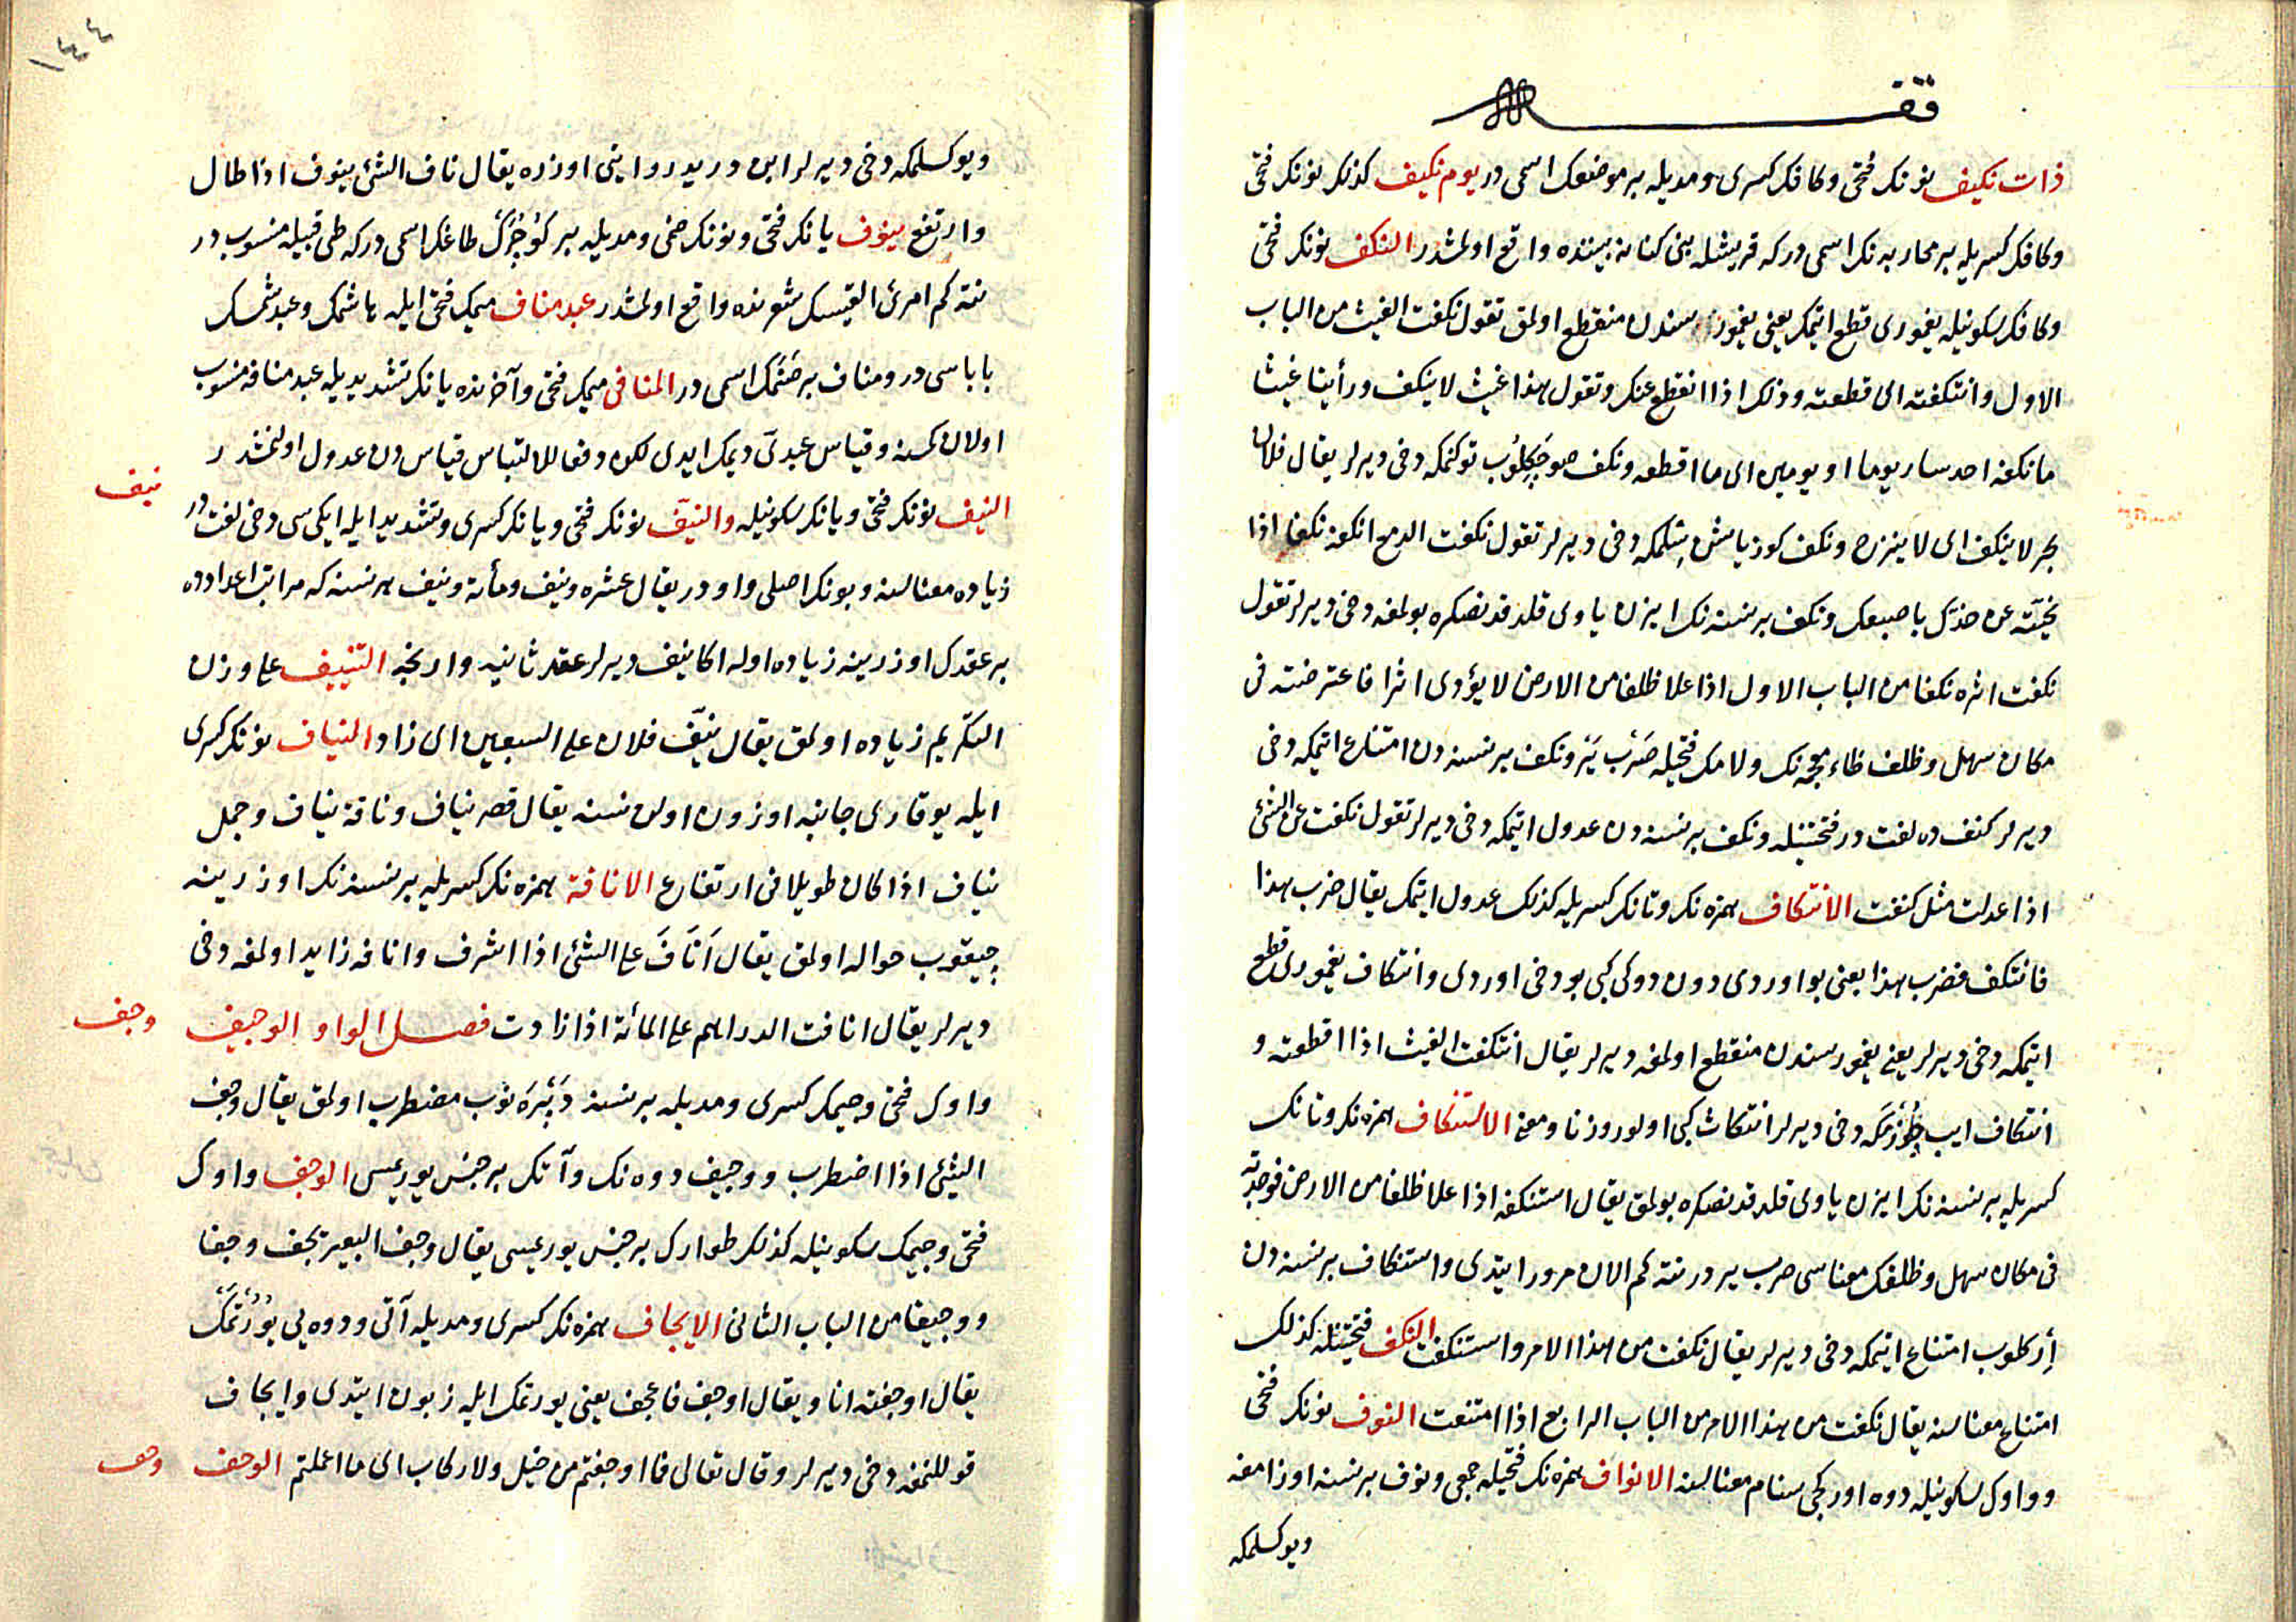 قف
ذات نكيف نونك فتحى وكافك كسرى ومديله بر موضعك اسمى در يوم نكيف كذلك نونك فتحى
وكافك كسريله بر محاربه نك اسمى در كه قريشله بنى كنانه بيننده واقع اولمشدر النكف نونك فتحى
وكافك سكونيله يغمورى قطع ايتمك يعنى يغمور سندن منقطع اولمق تقول نكفت الغيث من الباب
الاول وانتكفته اى قطعته وذلك اذا انقطع عنك وتقول هذا غيث لا ينكف ورأينا غيثا
ما نكفه احد سار يوما او يومين اى ما اقطعه ونكف صو چكلوب توكنمكه دخى ديرلر يقال فلان
بحر لا ينكف اى لا ينزح ونكف كوز ياشن سلمكه دخى ديرلر تقول نكفت الدمع انكفه نكفا اذا
نحيته عن خدك باصبعك ونكف بر نسنه نك ايزن ياوى قلدقدنصكره بولمغه دخى ديرلر تقول
نكفت اثره نكفا من الباب الاول اذا علا ظلفا من الارض لا يؤدى اثرا فاعترضته فى
مكان سهل وظلف ظاء معجمه نك ولامك فتحيله صرب ير ونكف بر نسنه دن امتناع ايتمكه دخى
ديرلر كنف ده لغت در فتحتيله ونكف بر نسنه دن عدول ايتمكه دخى ديرلر تقول نكفت عن الشئ
اذا عدلت مثل كنفت الانتكاف همزه نك وتانك كسريله كذلك عدول ايتمك يقال ضرب هذا
فانتكف فضرب هذا يعنى بو اوردى دون دوكى كبى بو دخى اوردى وانتكاف يغمورى قطع
ايتمكه دخى ديرلر يعنى يغمور سندن منقطع اولمغه ديرلر يقال انتكفت الغيث اذا اقطعته و
انتكاف ايب چوزمكه دخى ديرلر انتكاث كبى اولور وزنا ومعنى الاستنكاف همزه نك وتانك
كسريله بر نسنه نك ايزن ياوى قلدقدنصكره بولمق يقال استنكفه اذا علا ظلفا من الارض فوجدته
فى مكان سهل وظلفك معناسى صرب ير در نته كم الان مرور ايتدى واستنكاف بر نسنه دن
أركلوب امتناع ايتمكه دخى ديرلر يقال نكفت من هذا الامر واستنكفت النكف فتحتيله كذلك
امتناع معناسنه يقال نكفت من هذا الامر من الباب الرابع اذا امتنعت النوف نونك فتحى
وواوك سكونيله دوه اوركجى سنام معناسنه الانواف همزه نك فتحيله جمعى ونوف بر نسنه اوزامغه
ويوكسلمكه
١٤٤
ويوكسلمكه دخى ديرلر ابن دريد روايتى اوزره يقال ناف الشئ ينوف اذا طال
وارتفع ينوف يانك فتحى ونونك ضمى ومديله بر كوچرك طاغك اسمى در كه طى قبيله منسوب در
نته كم امرئ القيسك شعرنده واقع اولمشدر عبد مناف ميمك فتحى ايله هاشمك وعبد شمسك
باباسى در ومناف بر صنمك اسمى در المنافى ميمك فتحى وآخرنده يانك تشديديله عبد منافه منسوب
اولان كسنه وقياس عبدى ديمك ايدى لكن دفعا للالتباس قياس دن عدول اولنمشدر
نيف
النيف نونك فتحى ويانك سكونيله والنيف نونك فتحى ويانك كسرى وتشديد ايله ايكى سى دخى لغت در
زياده معناسنه وبونك اصلى واو در يقال عشره ونيف ومأة ونيف هر نسنه كه مراتب اعدادده
بر عقدك اوزرينه زياده اوله اكا نيف ديرلر عقد ثانيه وارنجه التنييف على وزن
التكريم زياده اولمق يقال نيف فلان على السبعين اى زاد النياف نونك كسرى
ايله يوقارى جانبه اوزون اولن نسنه يقال قصر نياف وناقة نياف وجمل
نياف اذا كان طويلا فى ارتفاع الانافة همزه نك كسريله بر نسنه نك اوزرينه
چيقوب حواله اولمق يقال أناف على الشئ اذا اشرف وانافه زايد اولمغه دخى
ديرلر يقال انافت الدراهم على المائة اذا زادت فصل الواو الوجيف
وجف
واوك فتحى وجيمك كسرى ومديله بر نسنه دپرنوب مضطرب اولمق يقال وجف
الشئ اذا اضطرب ووجيف دوه نك وآتك بر جنس يوريمسى الوجف واوك
فتحى وجيمك سكونيله كذلك طوارك بر جنس يوريمسى يقال وجف البعير يجف وجفا
ووجيفا من الباب الثانى الايجاف همزه نك كسرى ومديله آتى ودوه يى يورتمك
يقال اوجفته انا ويقال اوجف فاعجف يعنى يورتمك ايله زبون ايتدى وايجاف
قوللنمغه دخى ديرلر وقال تعالى فما اوجفتم من خيل ولا ركاب اى ما اعملتم الوحف
وحف